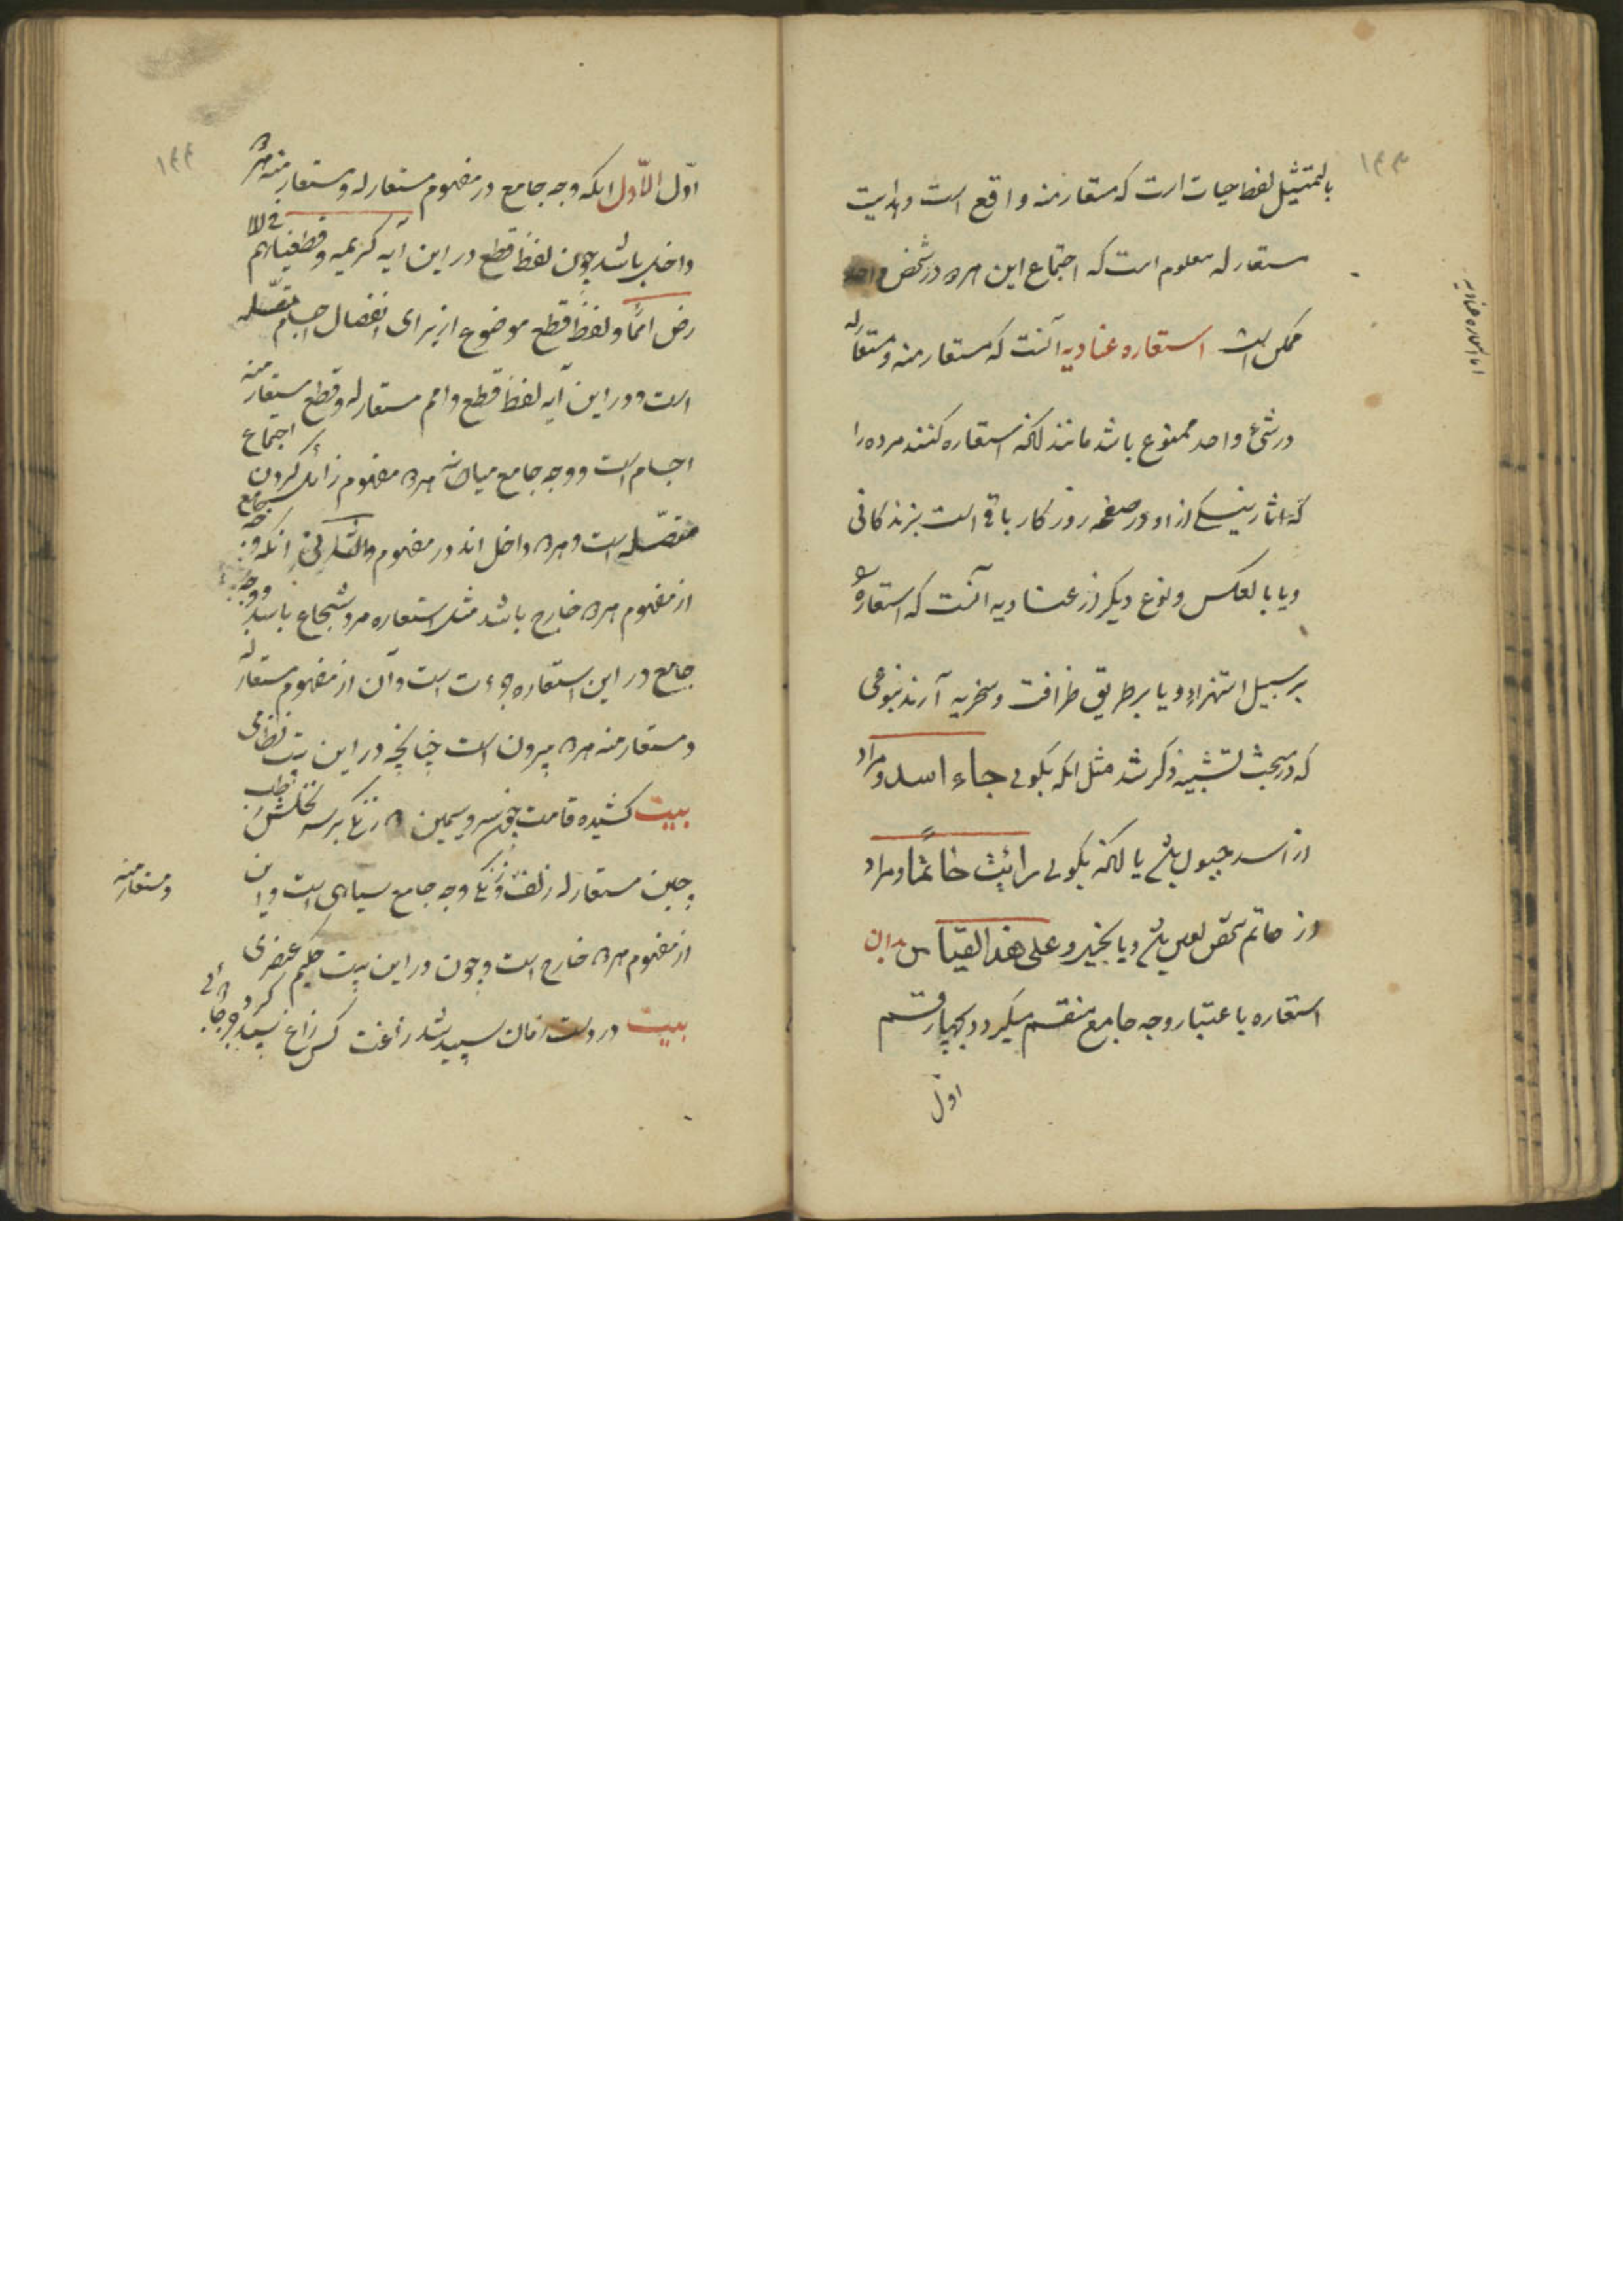 ۱۴۳
بالتمثیل لفظ حیات است که مستعار منه واقع است و هدایت
مستعار له معلوم است که اجتماع این هر دو در شخص واحد
ممکن است استعاره عنادیه آنست که مستعار منه و مستعار له
در شئ واحد ممنوع باشد مانند آنکه استعاره کنند مرده را
که آثار نیک از او در صفحه روزکار باقی است بزندکانی
و یا بالعکس و نوع دیکر از عنادیه آنست که استعاره
بر سبیل استهزاء و یا بر طریق ظرافت و سخریه آرند بنوعی
که در مبحث تشبیه ذکر شد مثل آنکه بکوئی جاء اسد و مراد
از اسد جبون باشد یا آنکه بکوئی رأیت حاتمًا و مراد
از حاتم شخص باشد و یا بخیل و علی هذا القیاس بدان
استعاره باعتبار وجه جامع منقسم میکردد بچهار قسم
اول
اما استعاره عنادیه
۱۴۴
اوّل الاوّل آنکه وجه جامع در مفهوم مستعار له و مستعار منه هر دو
داخل باشد چون لفظ قطع در این آیه کریمه و قطعناهم فی الا
رض امما و لفظ قطع موضوع از برای انفصال اجسام متصله
است و در این آیه لفظ قطع و امم مستعار له و قطع مستعار منه
اجسام است و وجه جامع میانه هر دو مفهوم زائل کردن اجتماع
متصله است و هر دو داخل اند در مفهوم و الثانی آنکه وجه جامع
از مفهوم هر دو خارج باشد مثل استعاره مرد شجاع باسد و وجه
جامع در این استعاره جرءت است و آن از مفهوم مستعار له
و مستعار منه هر دو بیرون است چنانچه در این بیت نظامی
بیت کشیده قامت چون سرو سیمین دو زنکی بر سر نخلش رطب
چین مستعار له زلف و زنکی وجه جامع سیاهی است و این
و مستعار منه
از مفهوم هر دو خارج است و چون در این بیت حکیم عنصری
بیت در دست زمان سپید شد زاغت کس زاغ سپید کرد جز جادو